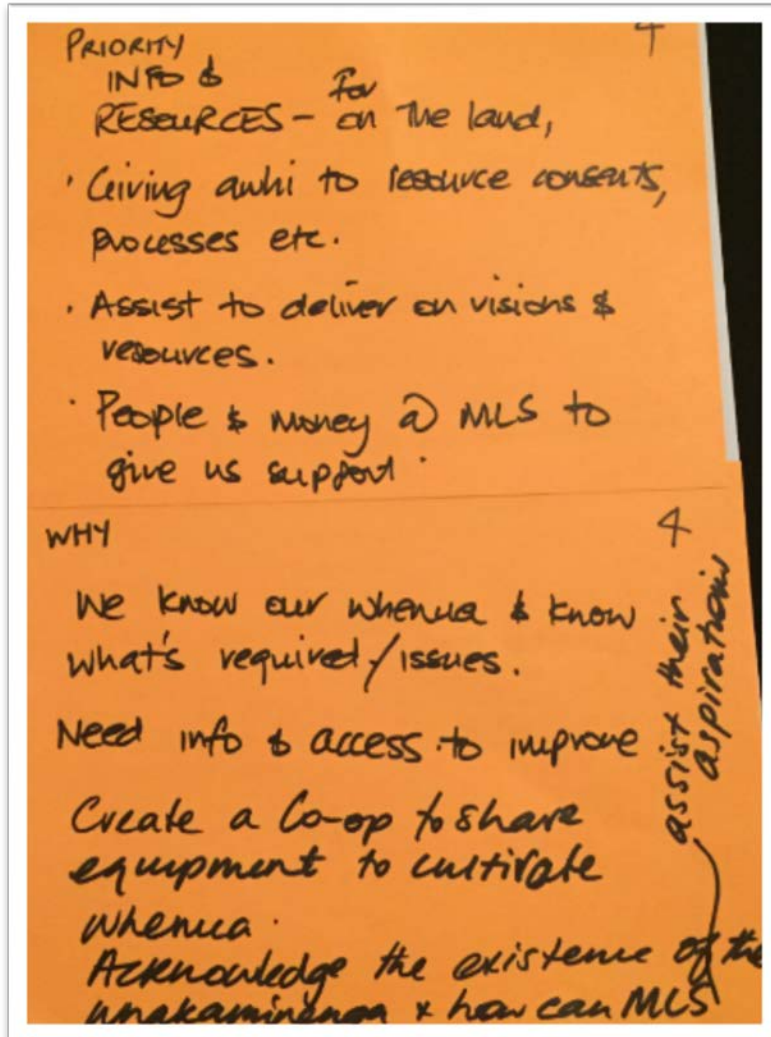 PRIORITY 4
INFO &
for
RESOURCES - on the land,
· Giving awhi to resource consents,
processes etc.
· Assist to deliver on visions &
resources.
· People & money @ MLS to
give us support.
WHY 4
We know our whenua & know
what's required/issues.
Need info & access to improve
Create a Co-op to share
equipment to cultivate
whenua.
Acknowledge the existence of the
whakaminenga & how can MLS
assist their
aspirations